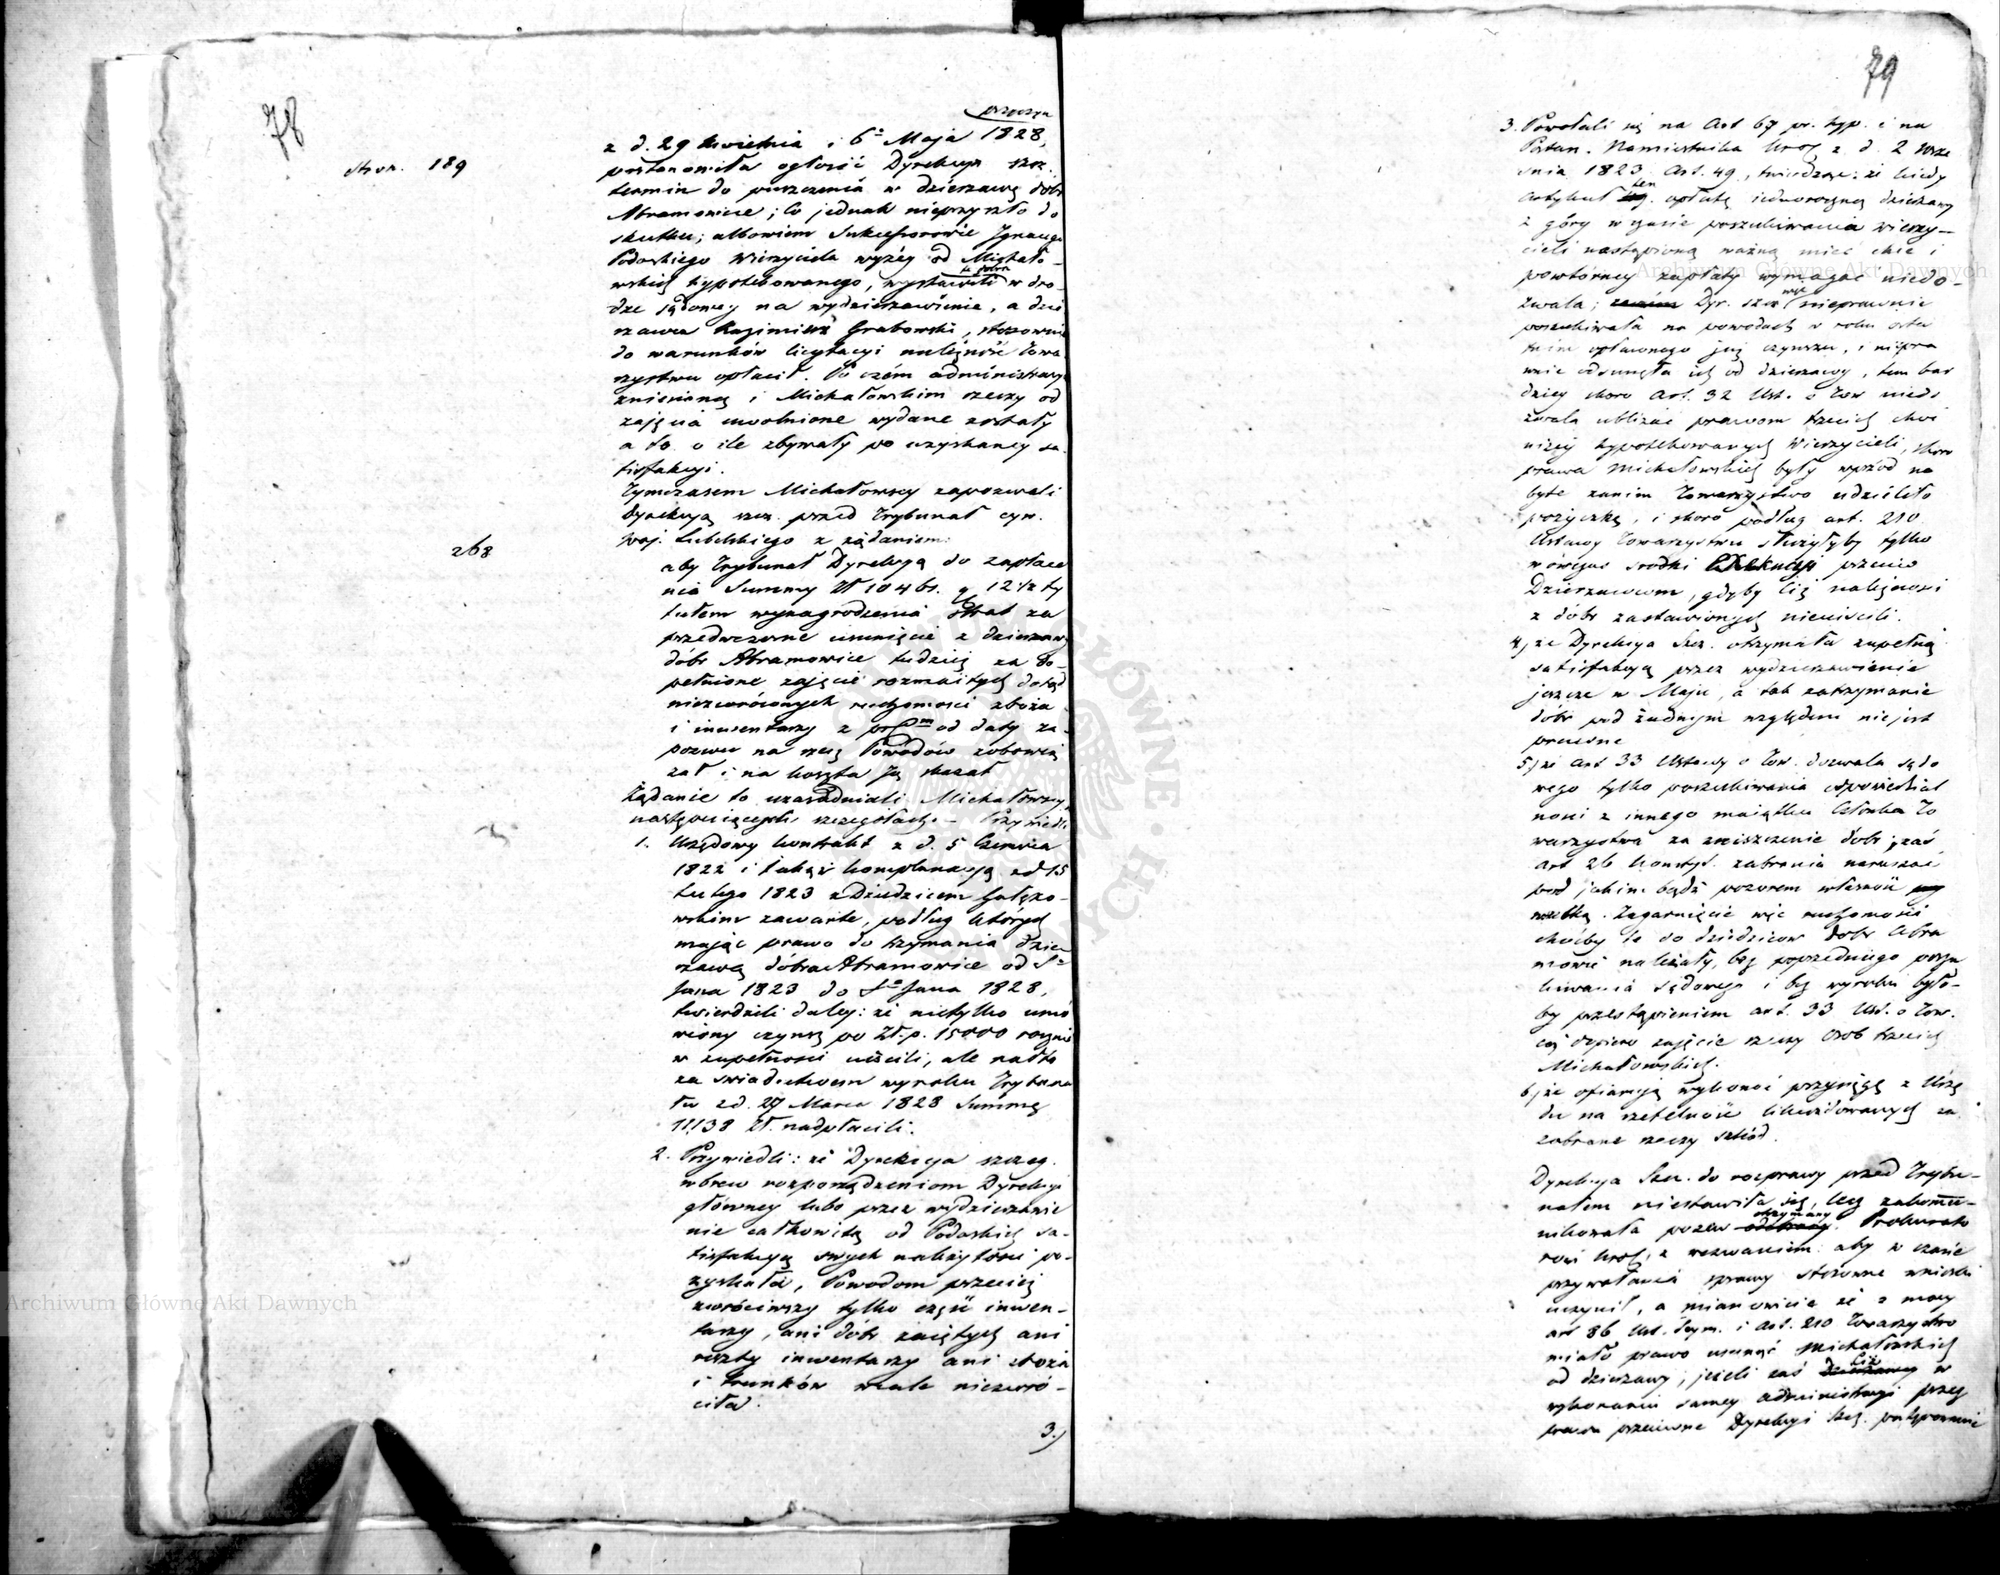 78
stron. 189
268
przeczyn
z d. 29 Kwietnia i 6º Maja 1828,
postanowiła ogłosić Dyrekcya szcz.
termin do puszczenia w dzierżawę dobr
Abramowice; co jednak nieprzyszło do
skutku; albowiem Sukcessorowie Ignacego
Podoskiego Wierzyciela wyżéy od Michało-
wskich hypotekowanego, wystawili te dobra w dro-
dze sądowey na wydzierżawienie, a dzie
rżawca Kazimierz Grabowski, stosownie
do warunków licytacyi należność Towa
rzystwu opłacił. Po czém administracya
zniesioną i Michałowskim rzeczy od
zajęcia uwolnione wydane zostały
a to o ile zbywały po uzyskaney sa-
tisfakcyi.
Tymczasem Michałowscy zapozwali
Dyrekcyą szcz. przed Trybunał cyw.
Woj. Lubelskiego z żądaniem:
aby Trybunał Dyrekcyą do zapłace
nia Summy Zł 10461. g. 12 1/2 ty
tułem wynagrodzenia strat za
przedwczesne usunięcie z dzierżawy
dóbr Abramowice tudzież za do-
pełnione zajęcie rozmaitych dotąd
niezwróconych ruchomości zboża
i inwentarzy z prctm od daty za-
pozwu na rzecz Powodów zobowią
zał i na koszta Ją skazał
Żądanie to uzasadniali Michałowscy
następuiącemi szczegółach: - Przywiedli
1. Urzędowy kontrakt z d. 5 Czerwca
1822 i takąż komplanacyą z d 15
Lutego 1823 z Dziedzicem Gałęzo-
wskim zawarte, podług których
mając prawo do trzymania dzier
żawą dóbr Abramowice od Sº
Jana 1823 do Sº Jana 1828,
twierdzili daley: że nietylko umó
wiony czynsz po Zł.p. 15000 rocznie
w zupełności uiścili, ale nadto
za świadectwem wyroku Trybuna
łu z d. 27 Marca 1828 Summę
11138 Zł. nadpłacili.
2. Przywiedli: że Dyrekcya szczeg.
wbrew rozporządzeniom Dyrekcyi
głównej lubo przez wydzierżawie
nie całkowitą od Podoskich sa-
tisfakcyą swych należytości po-
zyskała, Powodom przecież
zwróciwszy tylko część inwen-
tarzy, ani dóbr zaiętych ani
reszty inwentarzy ani zboża
i trunków wcale niezwró-
ciła.
3.)
79
3. Powołali się na Art 67 pr. hyp. i na
Postan. Namiestnika Król z d. 2 Wrze
śnia 1823 Art. 49, twierdząc: że kiedy
Artykuł ten opłatę jednoroczną dzierżawy
z góry w czasie poszukiwania wierzy-
cieli nastąpioną ważną mieć chce i
powtórney zapłaty wymagać niedo-
zwala; Dyr. szcz więc nieprawnie
poszukiwała na powodach w roku osta
tnim opłaconego już czynszu, i niepra
wnie odsunęła ich od dzierżawy, tem bar
dziey skoro Art. 32 Ust. o Tow niedo
zwala ubliżać prawom trzecich choć
niżey hypotekowanych Wierzycieli, skoro
prawa Michałowskich były wprzód na
byte zanim Towarzystwo udzieliło
pożyczkę, i skoro podług art. 210
Ustawy Towarzystwu służyłyby tylko
wówczas środki Exekucyi przeciw
Dzierżawcom, gdyby Ciż należności
z dóbr zastawionych nieuiścili.
4, że Dyrekcya Szcz. otrzymała zupełną
satisfakcyą przez wydzierżawienie
jeszcze w Maju, a tak zatrzymanie
dóbr pod żadnym względem niejest
prawne
5, że Art 33 Ustawy o Tow. dozwala sądo
wego tylko poszukiwania odpowiedzial
ności z innego maiątku Członka To
warzystwa za zniszczenie dobr, zaś
Art 26 Konstyt. zabrania naruszać
pod jakim bądź pozorem własność
wszelką. Zagarnięcie więc ruchomości
choćby te do dziedziców dobr Abra
mowic należały, bez poprzedniego poszu
kiwania sądowego i bez wyroku było-
by przestąpieniem art. 33 Ust. o Tow.
cóż dopiero zajęcie rzeczy Osób trzecich
Michałowskich.
6, że ofiarują wykonać przysięgę z Urzę
du na rzetelność likwidowanych za
zabrane rzeczy szkód.
Dyrekcya Szcz. do rozprawy przed Trybu-
nałem niestawiła się, lecz zakomu-
nikowała pozew otrzymany Prokurato
rowi Król, z wezwaniem: aby w czasie
przywołania sprawy stosowne wnioski
uczynił, a mianowicie że z mocy
art 86 Ust. Seym. i Art. 210 Towarzystwo
miało prawo usunąć Michałowskich
od dzierżawy, jeżeli zaś Ciż w
wykonaniu samey administracyi przez
prawu przeciwne Dyrekcyi Szcz. postępowanie